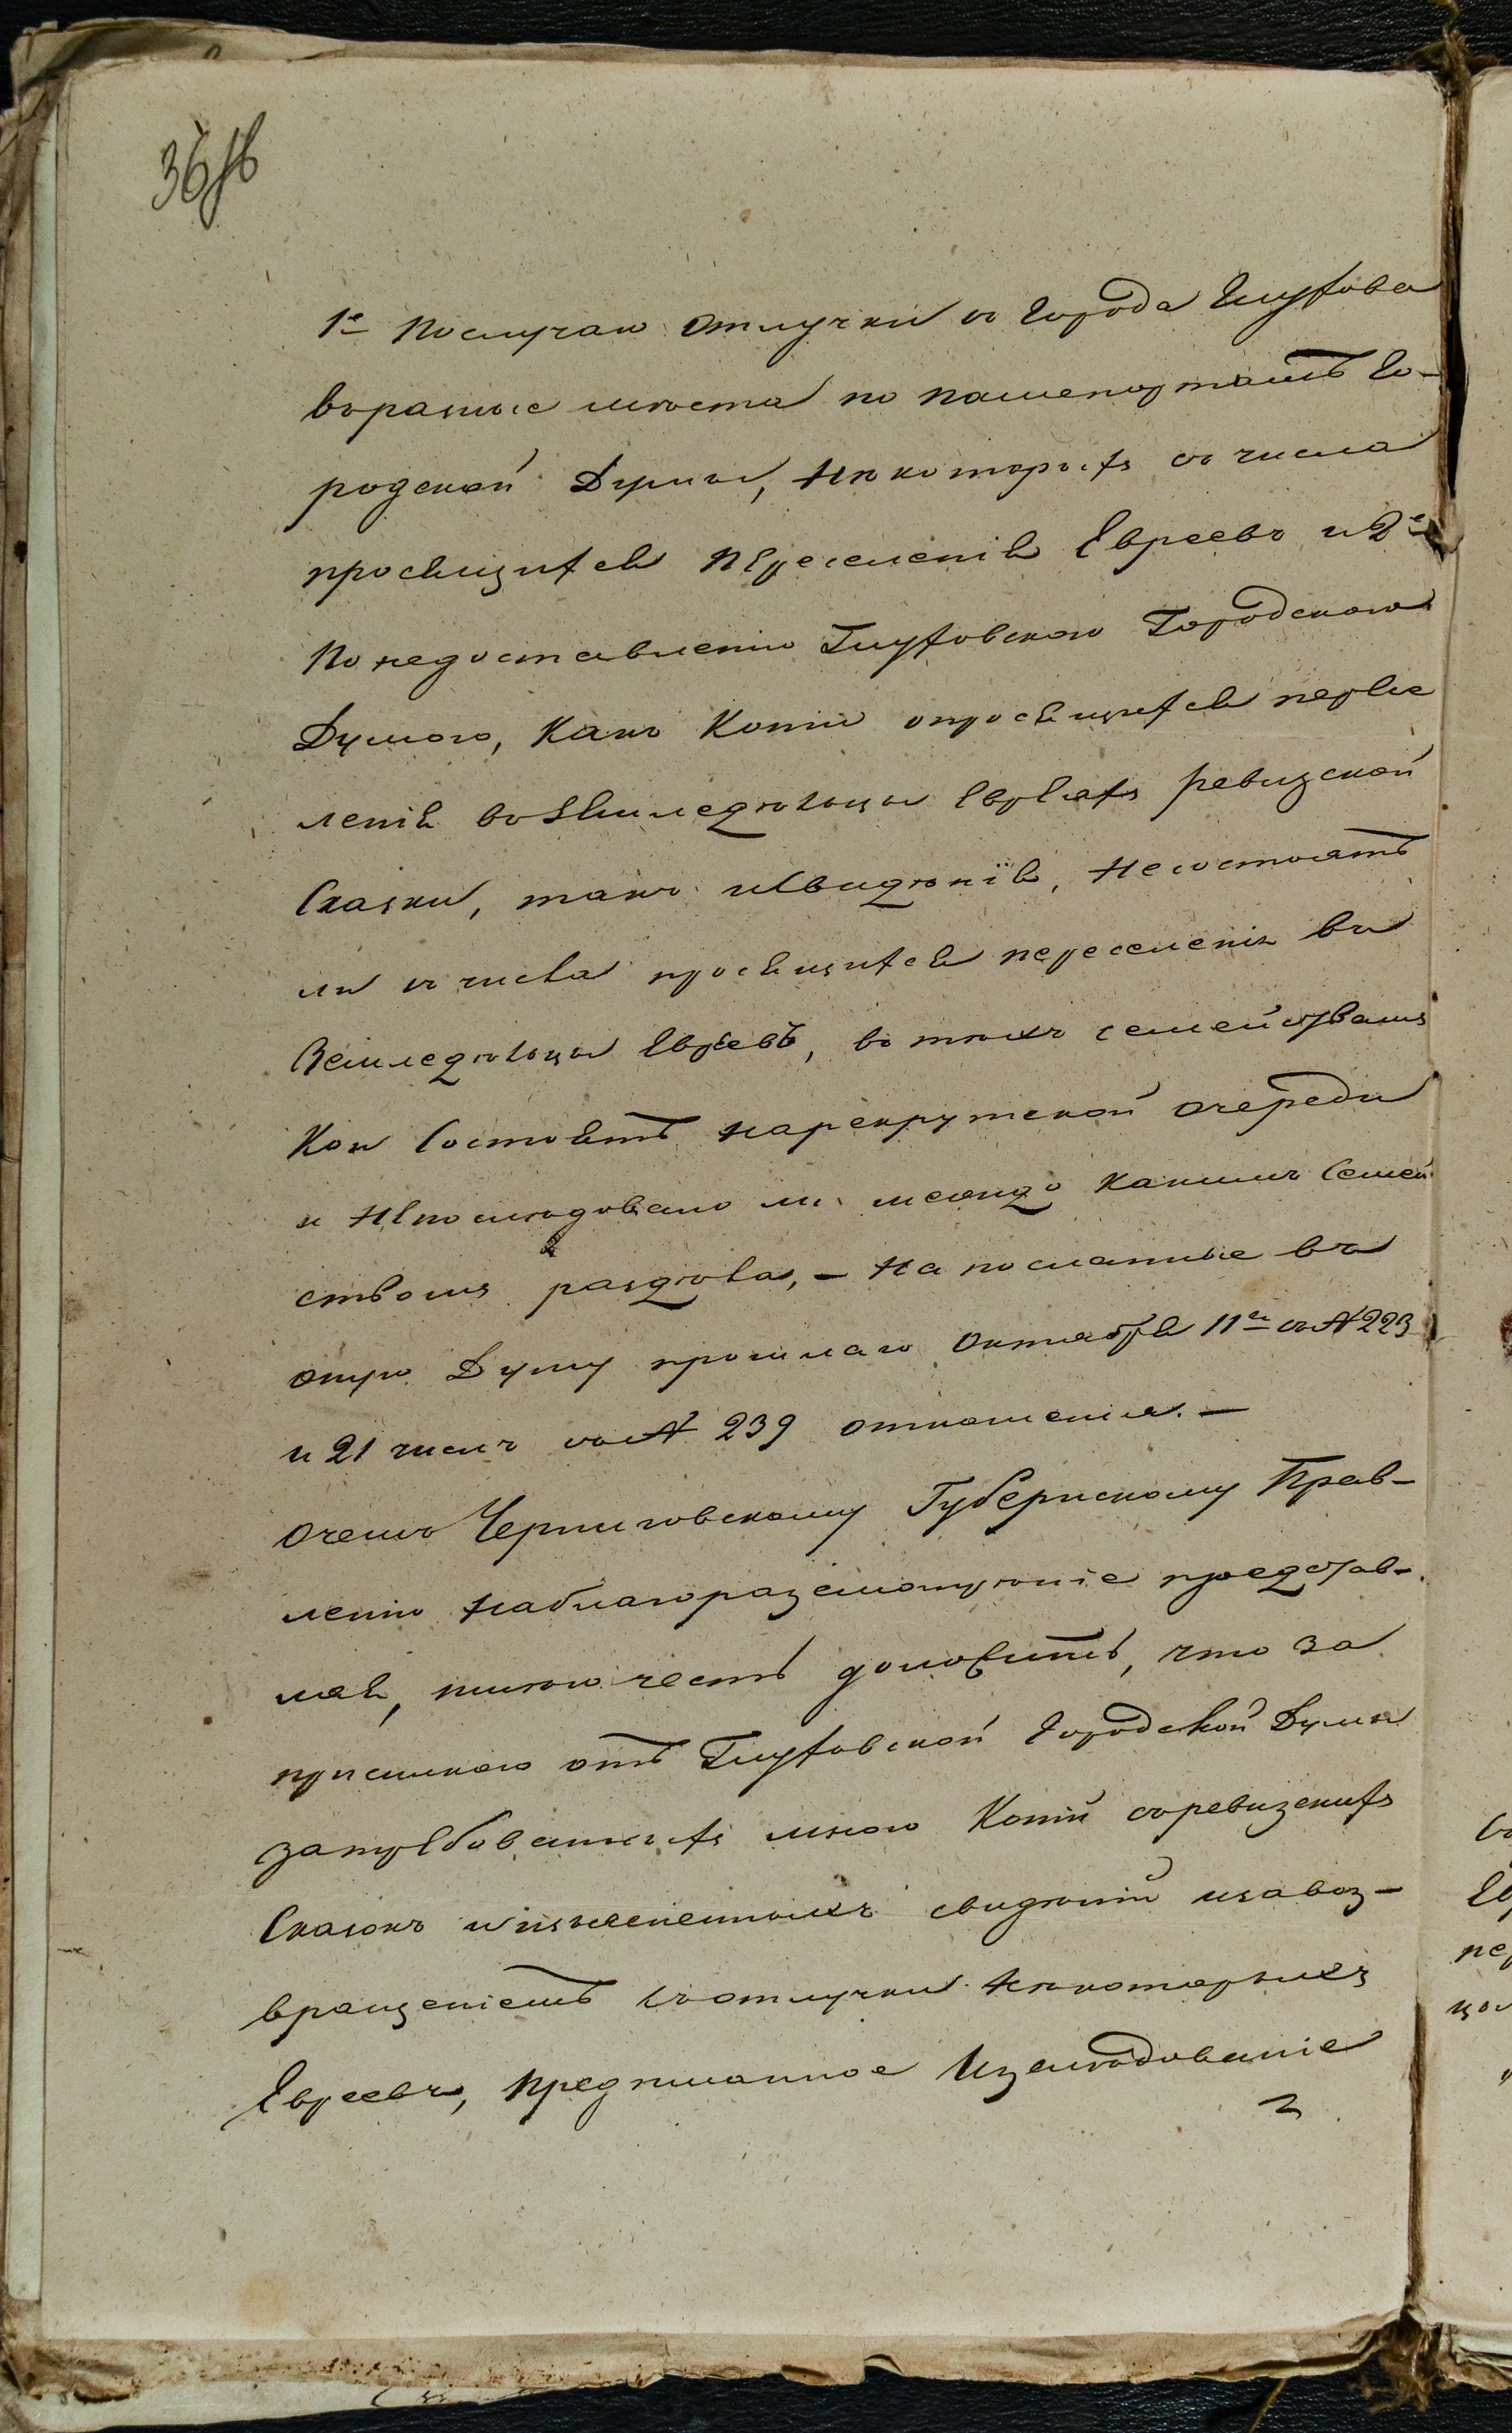 36 об
1е Послучаю отлучки съ города Глухова
въразные мѣста по пашепортамъ Го-
родской Думы, Нѣкоторыхъ съ числа
просящихся переселенія Евреевъ и 2е
По недоставленію Глуховскою Городскою
Думою, Какъ Копіи опросящихся пересе
ленія воземледѣльцы Евреяхъ ревизской
Сказки, такъ исвидѣнія, Несостоятъ
ли съ числа просящихся переселенія въ
Земледѣльцы Евреевъ, во тѣхъ семействахъ
Кои Состоятъ нарекрутской очереди
и Непослѣдовало ли между какимъ Семей
ствомъ раздѣла, – На посланные въ
оную Думу прошлаго Октября 11го съ № 223
и 21 числъ за № 239 отношенія. –
Очемъ Черниговскому Губернскому Прав-
ленію наблагоразсмотрѣніе представ-
ляя, имѣю честь доложить, что за
присылкою отъ Глуховской Городской Думы
затребованныхъ мною Копій съревизскихъ
Сказокъ иизъясненныхъ свидѣній изавоз-
вращеніемъ съотлучки Нѣкоторыхъ
Евреевъ, предписанное Изслѣдованіе